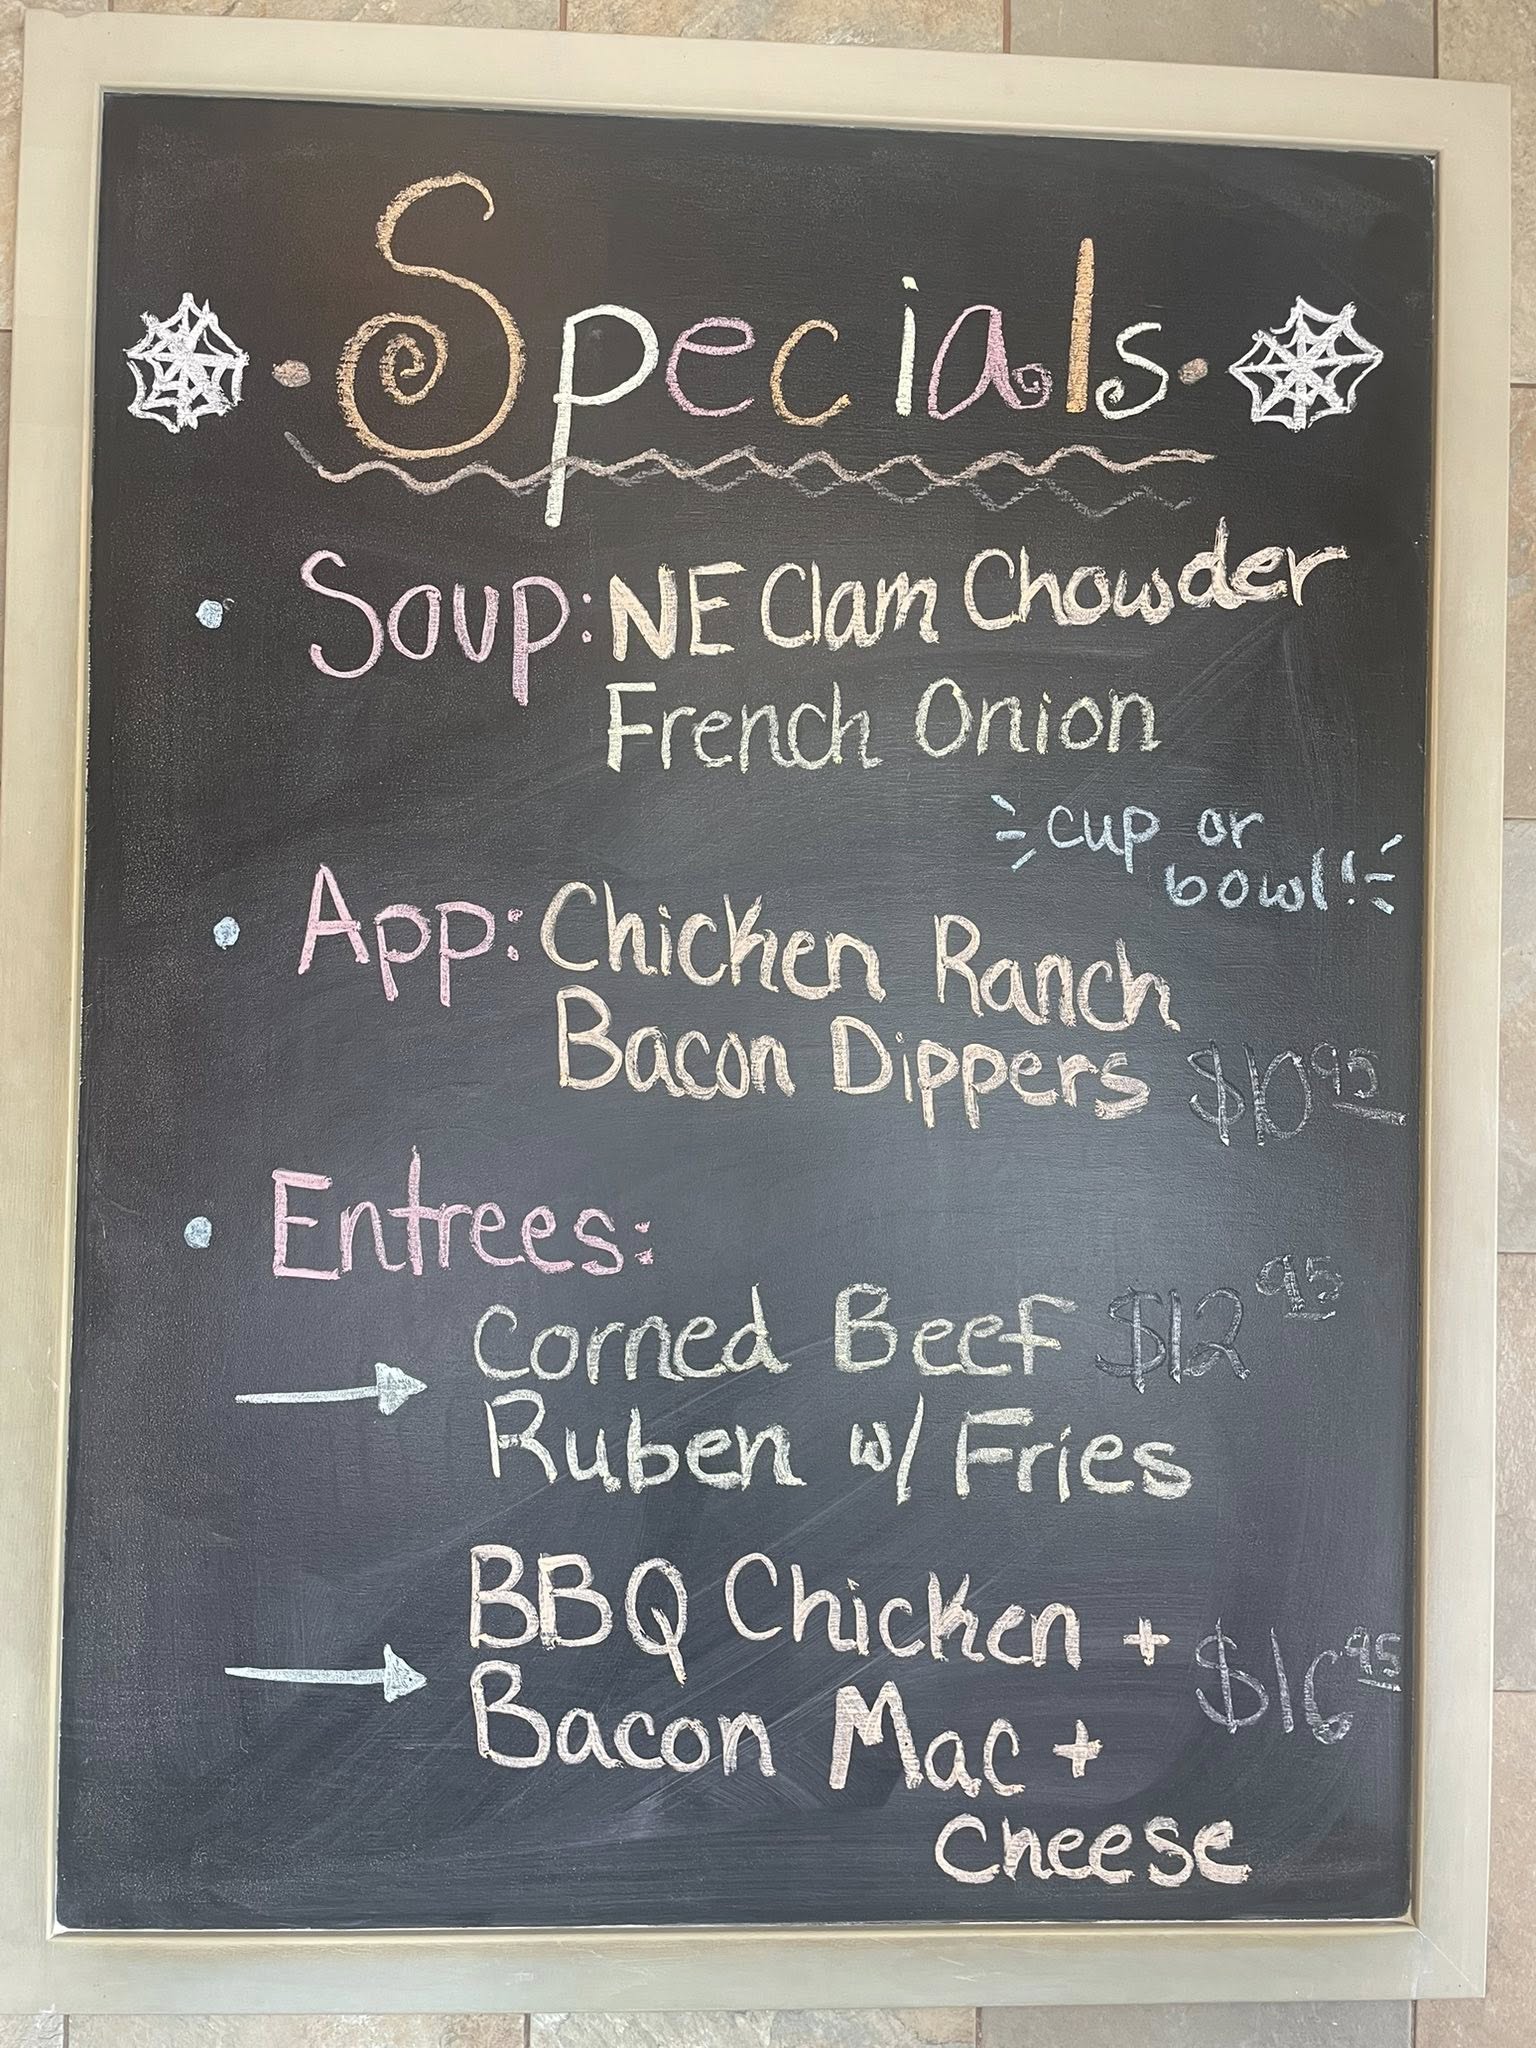 Specials
Soup: NE Clam Chowder
French Onion
cup or
bowl!
App: Chicken Ranch
Bacon Dippers $10 95
Entrees:
Corned Beef $12 95
Ruben w/ Fries
BBQ Chicken +
Bacon Mac + $16 95
Cheese